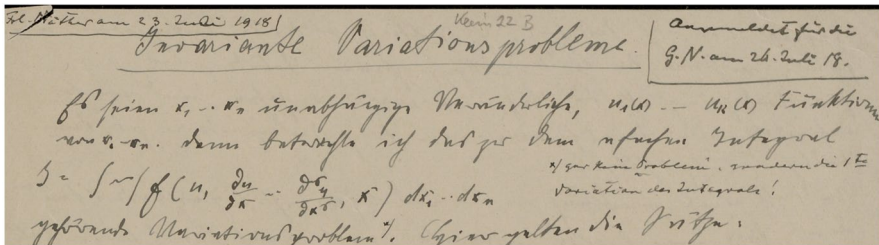 Frl. Nöther am 23. Juli 1918
Klein 22 B
Invariante Variationsprobleme.
Angemeldet für die
G. N. am 26. Juli 18.
Es seien x₁ … xₙ unabhängige Veränderliche, u₁(x) … (x) Funktionen
von x₁ … xₙ. Dann betrachte ich das zu dem n-fachen Integral
*) gar kein Problem, sondern die 1te
J = ∫…∫ f(u, ∂u/∂x … ∂^σu/∂x^σ, x) dx₁ … dxₙ
Variation des Integrals!
gehörende Variationsproblem*). Hier gelten die Sätze: